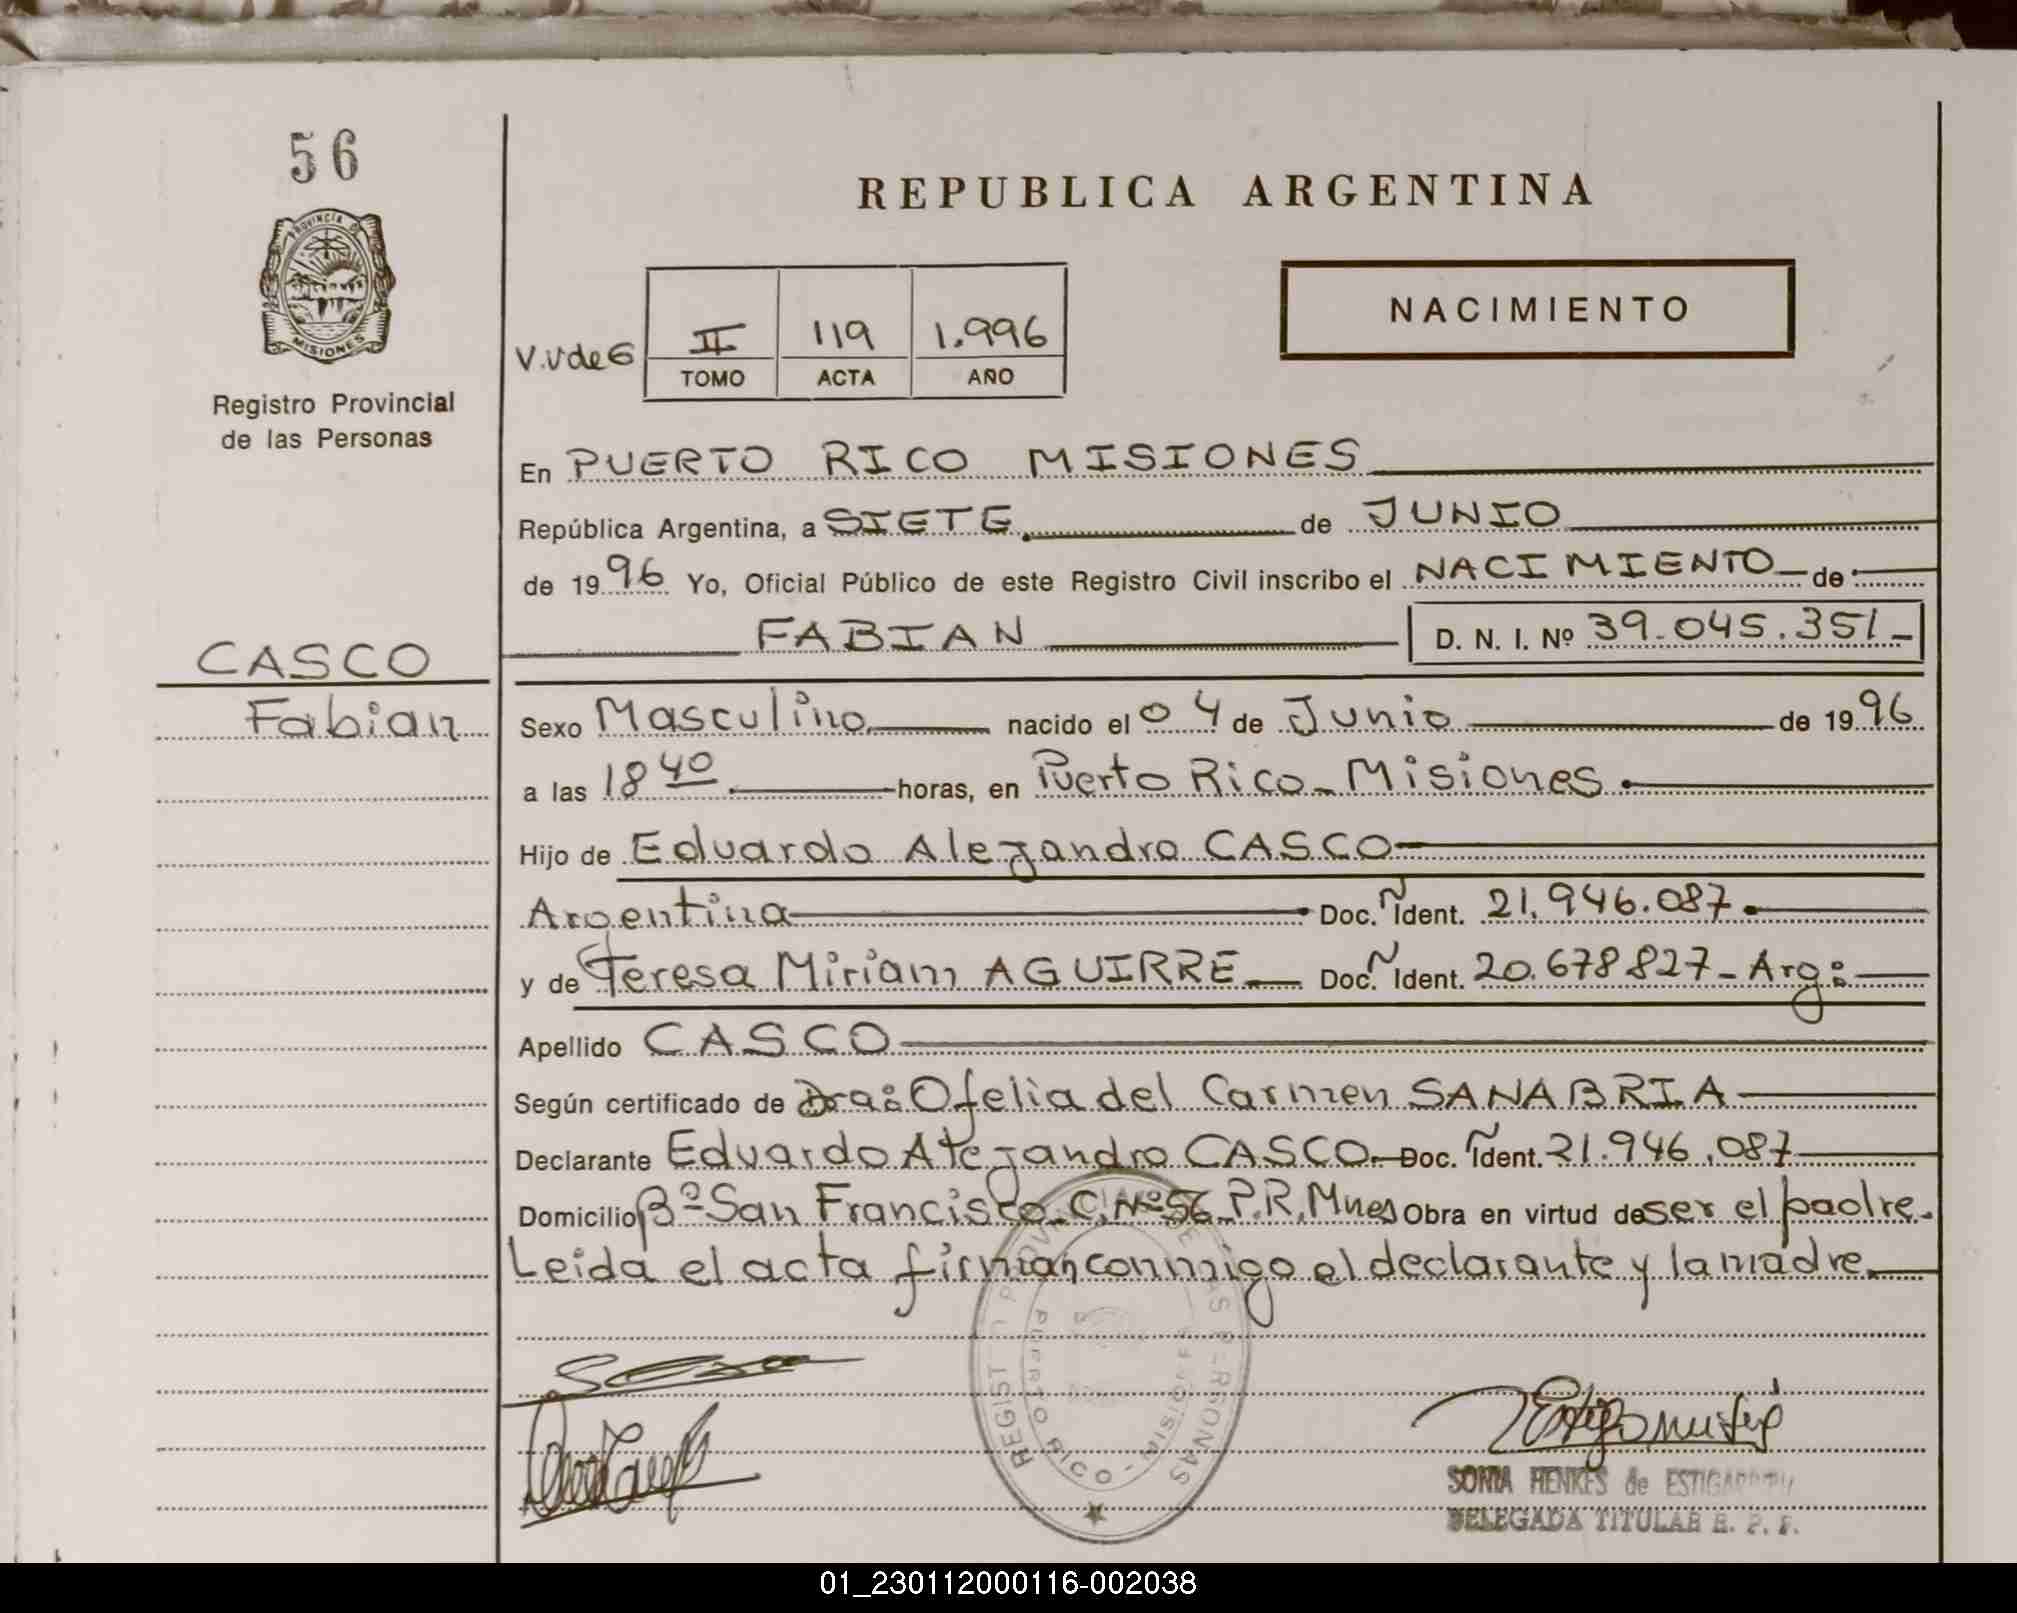 56
PROVINCIA DE
MISIONES
Registro Provincial
de las Personas
CASCO
Fabian
REPUBLICA ARGENTINA
NACIMIENTO
V.V de G
II 119 1.996
TOMO ACTA AÑO
En PUERTO RICO MISIONES
República Argentina, a SIETE. de JUNIO
de 1996 Yo, Oficial Público de este Registro Civil inscribo el NACIMIENTO de
FABIAN D. N. I. Nº 39.045.351
Sexo Masculino nacido el 04 de Junio de 1996
a las 18 40 horas, en Puerto Rico - Misiones.
Hijo de Eduardo Alejandro CASCO
Argentina Doc. Ident. 21.946.087.
y de Teresa Miriam AGUIRRE Doc. Ident. 20.678827- Arg:
Apellido CASCO
Según certificado de Dra: Ofelia del Carmen SANABRIA
Declarante Eduardo Alejandro CASCO. Doc. Ident. 21.946.087
Domicilio Bº San Francisco C. Nº 56 P.R. Mnes Obra en virtud de ser el padre.
Leida el acta firman conmigo el declarante y la madre.
PUERTO RICO - MISIONES
SONIA HENKES de
DELEGADA TITULAR R. P. P.
01_230112000116-002038